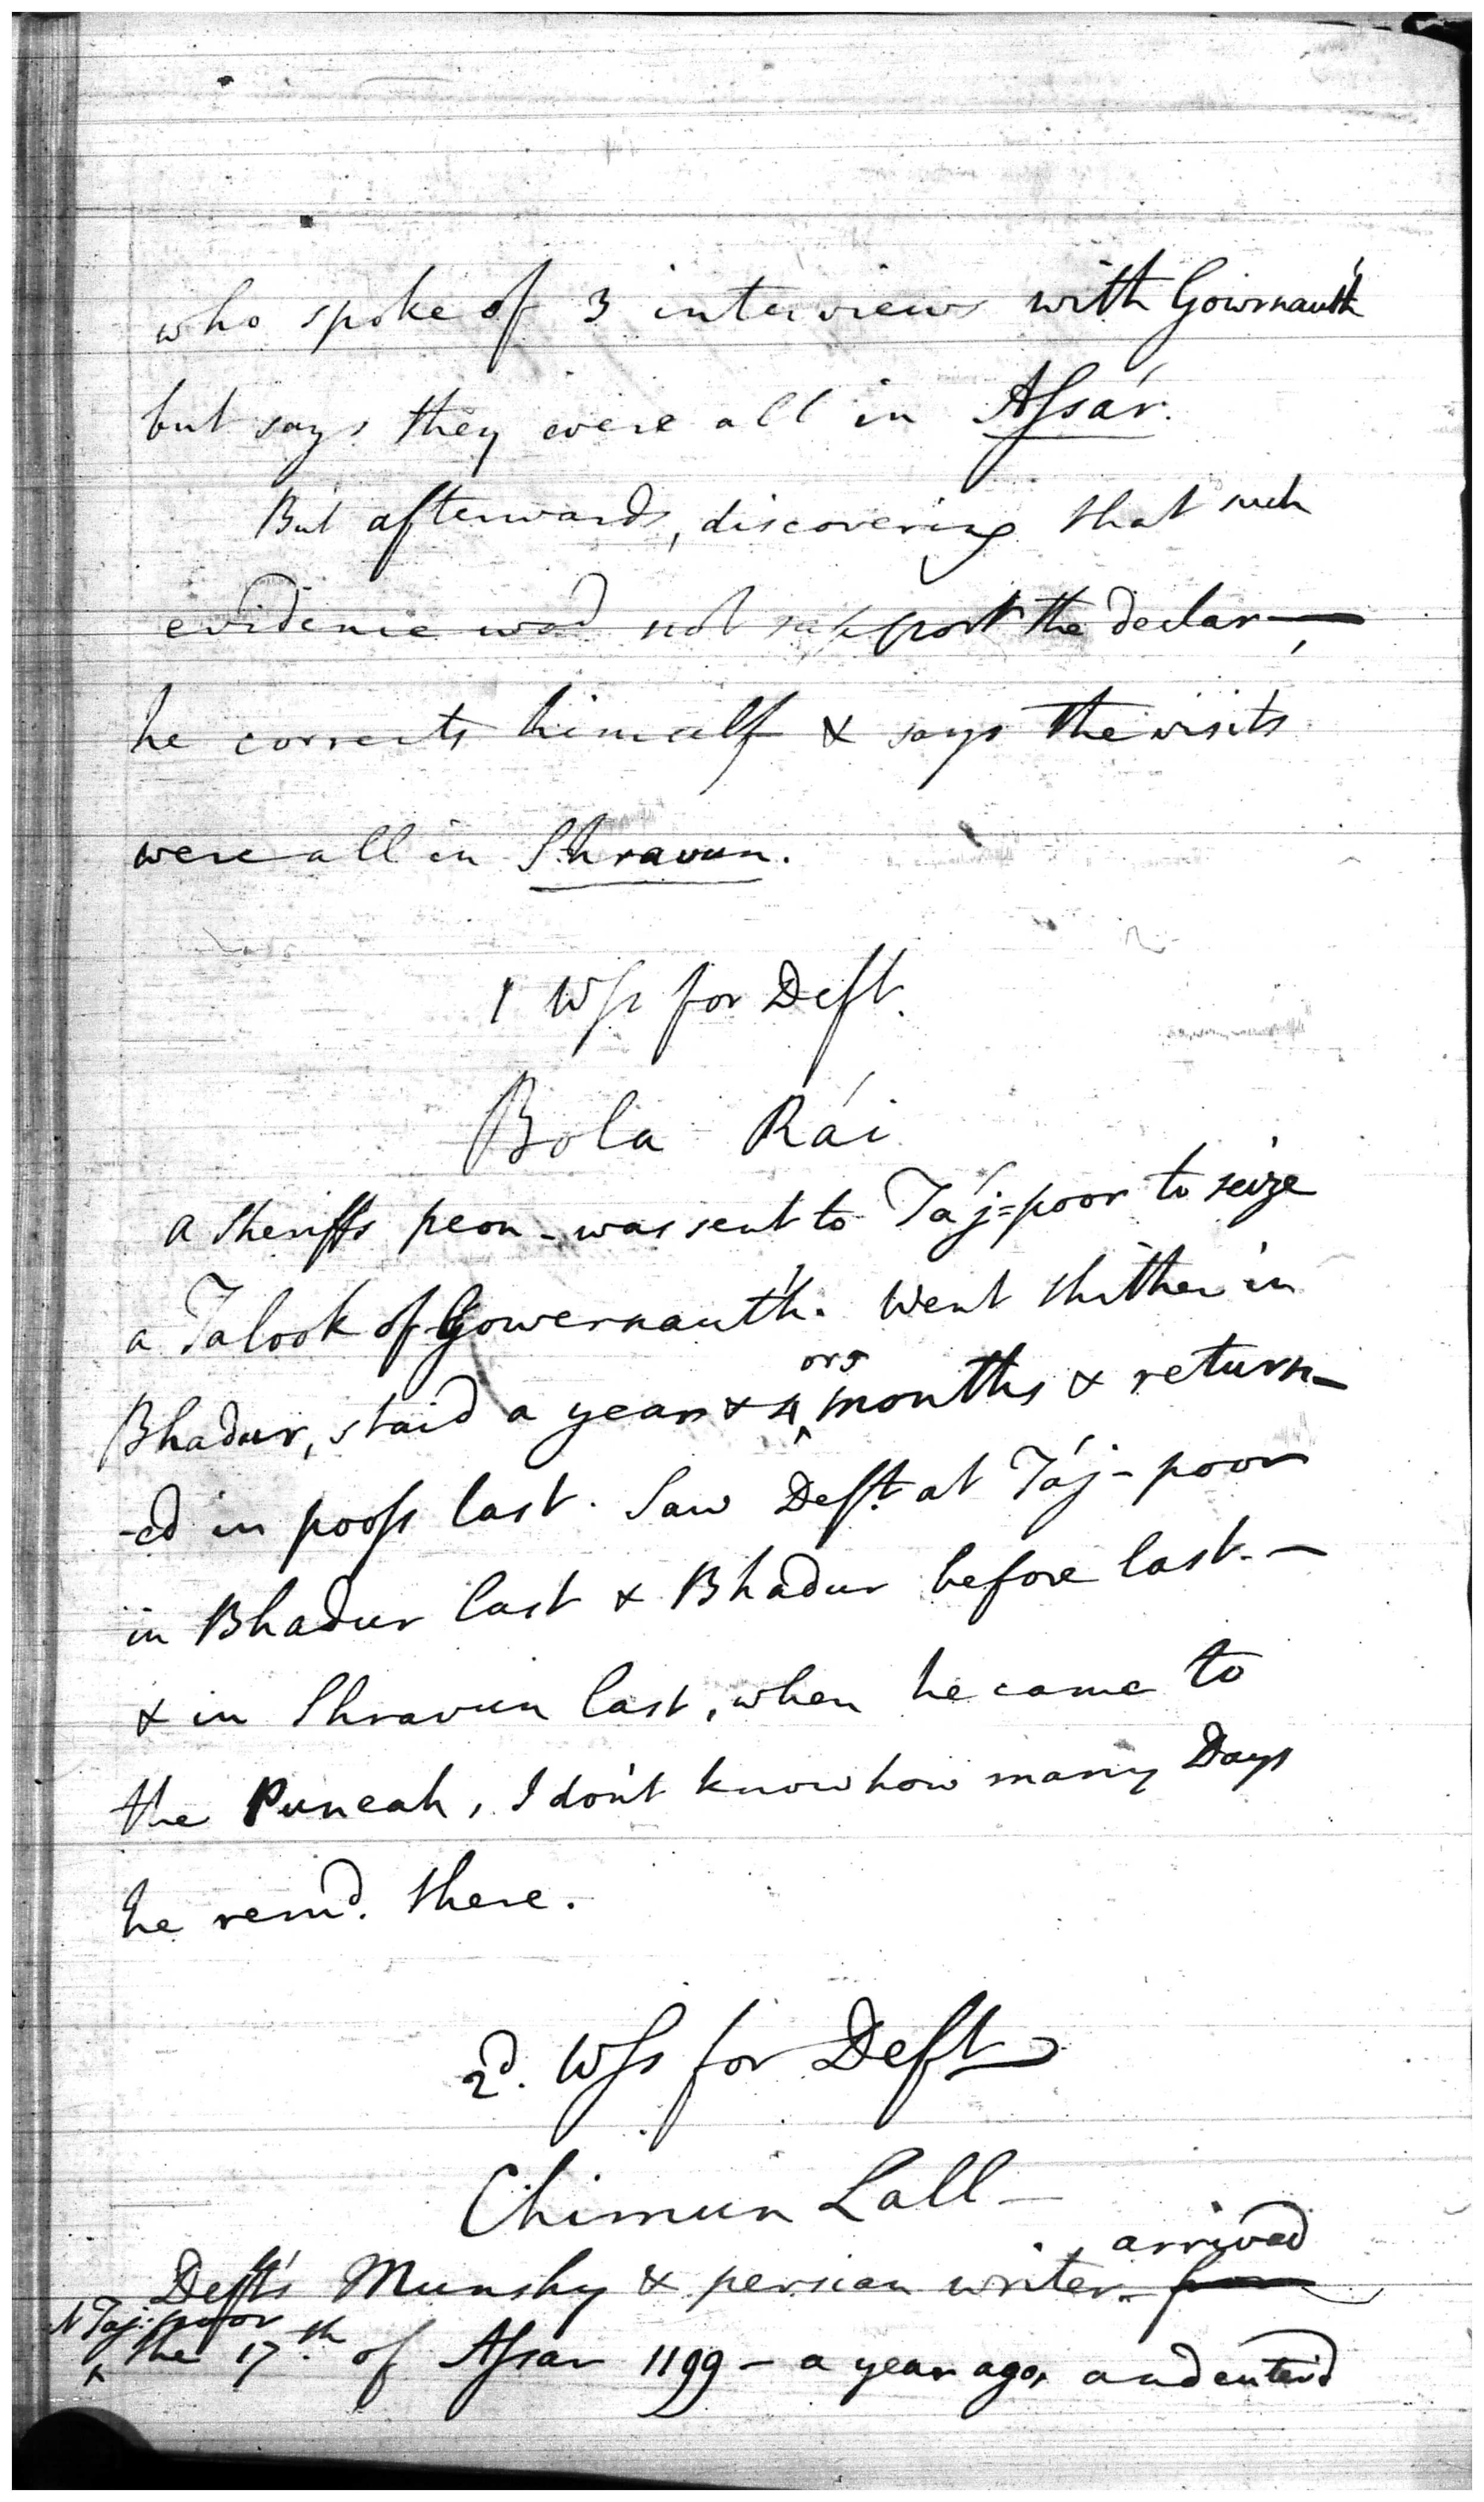 who spoke of 3 interviews with Gowrnauth
but says they were all in Aſsár.
But afterwards, discovering that such
evidence wod not support the declar—,
he corrects himself & says the visits
were all in Shravun.
1 Wſs for Deft.
Bola Rái
a Sheriffs peon - was sent to Táj=poor to seize
a Talook of Gowernauth. Went thither in
Bhadur, staid a year & 4 or 5 months & return-
-ed in pooſs last. Saw Deft. at Táj-poor
in Bhadur last & Bhadur before last. —
& in Shravun last, when he came to
the Puneah, I don't know how many Days
he remd. there.
2d. Wſs for Deft
Chimun Lall —
Deft's Munshy & persian writer - from arrived
at Taj=poor
the 17th. of Aſsar 1199 - a year ago, and enter'd